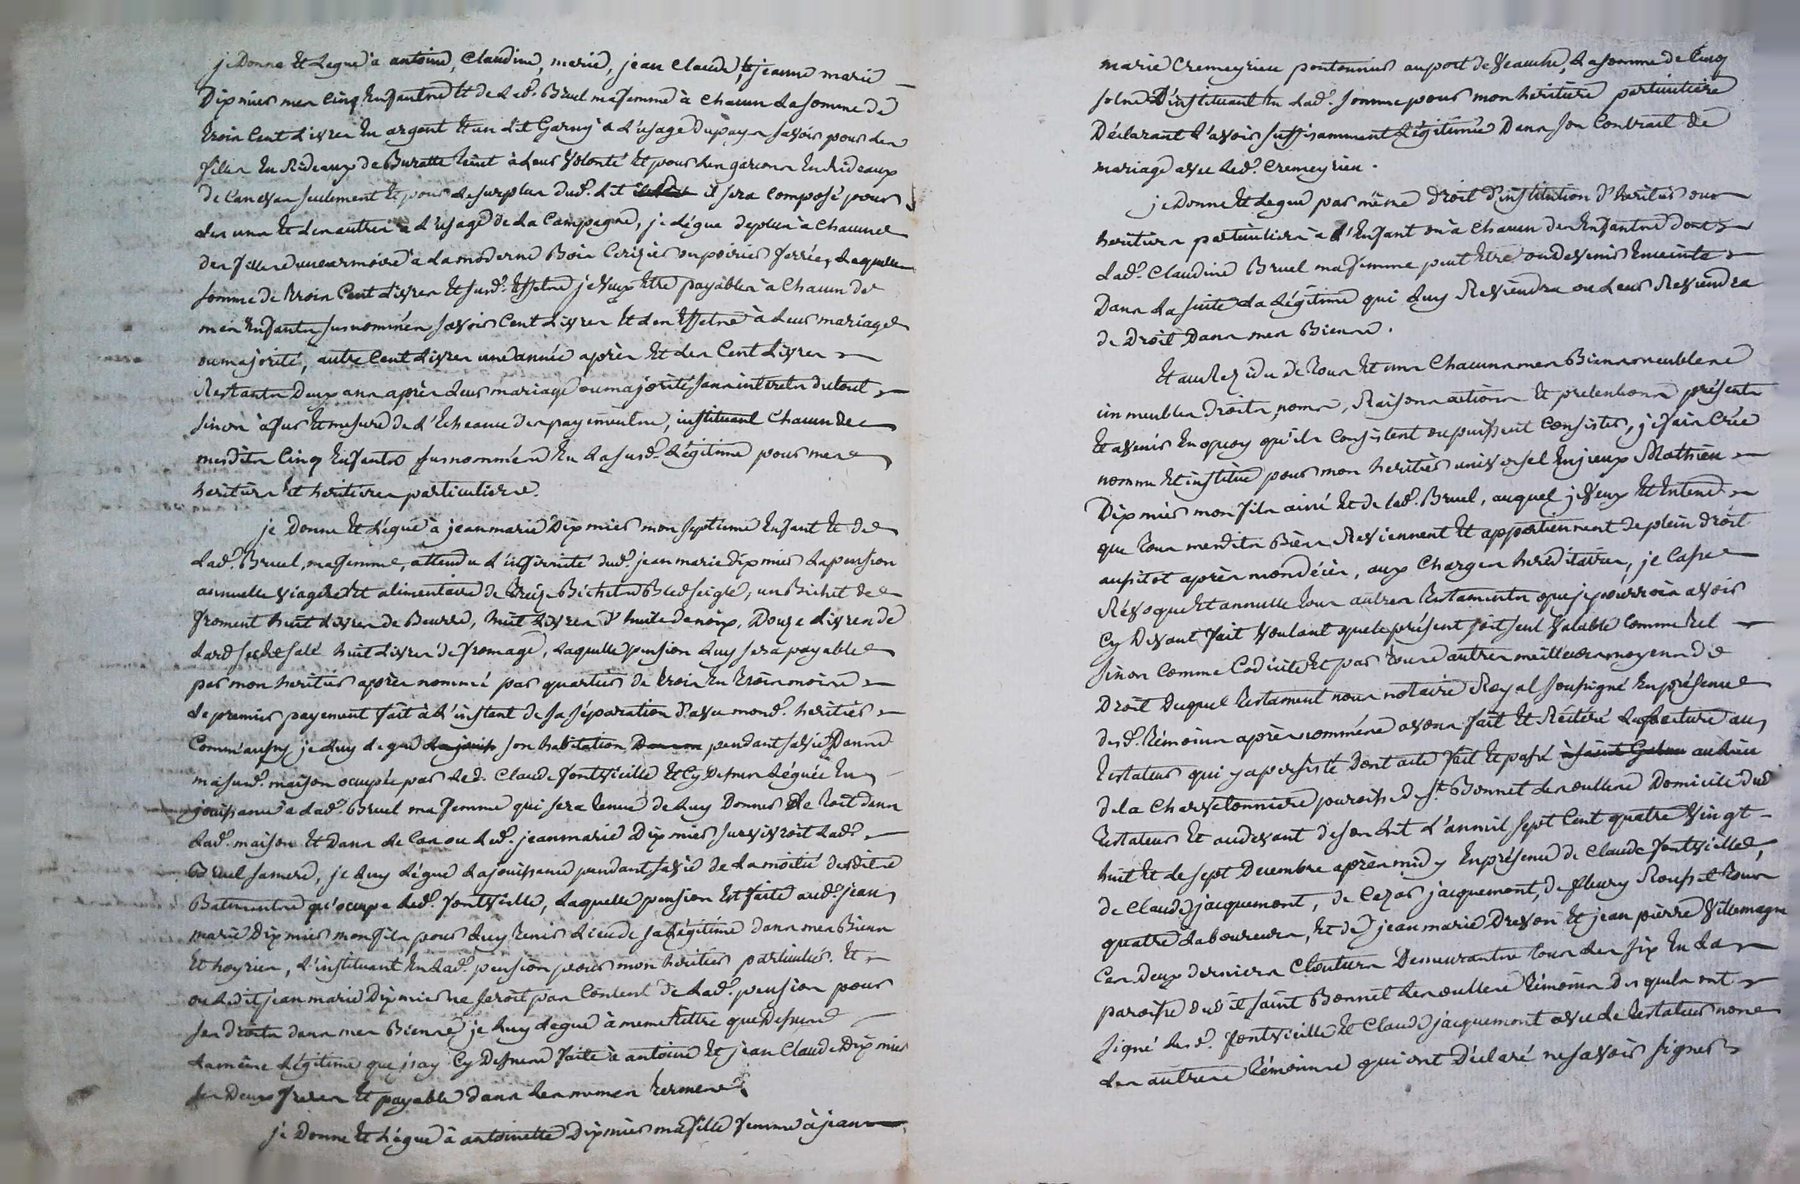 je Donne Et Legue à antoine, Claudine, marie, jean Claude, & jeanne marie
Dixmier mes Cinq Enfantre Et de Lad.e Bruel ma femme à Chacun La somme de
trois Cent Livres En argent Et un Lit Garny à L'usage Du pays savoir pour Les
filles En Rideaux de Buratte teint à Leur Volonté Et pour Les garcons En Rideaux
de Canevas seulement Et pour Le surplus dud. Lit il sera Composé pour
Les unes Et Les autres à L'usage de La Campagne, je Légue de plus à Chacune
des filles une armoire à La moderne Bois Cerizier ou poirier ferrée, Laquelle
somme de trois Cent Livres Et susd. Effetre je Veux Etre payables à Chacun de
mes Enfants susnommés savoir Cent Livres Et Les Effetre à Leur mariage
ou majorité, autre Cent Livres une année après Et Les Cent Livres
Restants Deux ans après Leur mariage ou majorité sans interets du tout
sinon à fur Et mesure de L'Echeance des payementre, instituant Chacun de
mesdits Cinq Enfants susnommére En La susd.e Légitime pour mes
heritiers Et heritieres particuliere.
je Donne Et Légue à jean marie Dixmier mon septieme Enfant Et de
Lad.e Bruel, ma femme, attendu L'infirmité dud. jean marie dixmier La pension
annuelle viagere Et alimentaire de treize Bichets Bled seigle, un Bichet de
froment huit Livres de Beurre, huit Livres d'huile de noix, Douze Livres de
Lard sec Et salé huit Livres de fromage, Laquelle pension Luy sera payable
par mon heritier après nommé par quartier de trois En trois moire
Le premier payement fait à L'instant de sa séparation d'avec mond. heritier
Comm'aussy je Luy Legue son habitation pendant sa vie Danne
ma susd. maison ocupée par Led. Claude fontvieille Et Cy Dessus Léguée En
jouissance à Lad.e Bruel ma femme qui sera tenue de Luy Donner Le toit dans
Lad. maison Et Dans Le Cas ou Led. jean marie Dixmier survivroit Lad.e
Bruel sa mere, je Luy Légue La jouissance pendant sa vie de La moitié desdits
Batimentre qu'ocupe Led. fontvieille, Laquelle pension Est faite aud. jean
marie Dixmier mon fils pour Luy tenir Lieu de sa Légitime dans mes Biens
Et hoyries, L'instituant En Lad.e pension pour mon heritier particulier. Et
ou Ledit jean marie Dixmier ne seroit pas Content de Lad.e pension pour
ses droits dans mes Bienre je Luy Legue à meme tittre que Dessus
La même Légitime que j'ay Cy Dessus faite à antoine Et jean Claude Dixmier
ses Deux freres Et payable Dans Les memes termere.
je Donne Et Légue à antoinette Dixmier ma fille femme à jean
marie Cremeyrieu pontonnier au port de Veauche, La somme de Cinq
sols L'instituant En Lad.e somme pour mon heritiere particuliere
Déclarant L'avoir suffisamment Légitimée Dans son Contrait de
mariage avec Led. Cremeyrieu.
je Donne Et Legue par même droit d'institution d'heritier ou
heritiers particuliers à L'Enfant ou à Chacun des Enfantre dont
Lad.e Claudine Bruel ma femme peut Etre ou devenir Enceinte
Dans La suite La Légitime qui Luy Reviendra ou Leur Reviendra
de Droit Dans mes Bienre.
Et au Rézidu de tous Et uns Chacuns mes Biens meublere
immeubles droits, noms, Raisons actions Et pretentions présents
Et avenir En quoy qu'ils Consistent ou puissent Consister, je fais Crée
nomme Et institue pour mon heritier universel Enjeux Mathieu
Dixmier mon fils ainé Et de lad.e Bruel, auquel je Veux Et Entend
que tous mesdits Biens Reviennent Et appartiennent de plein droit
aussitot après mon décès, aux Charges hereditaires, je Casse
Révoque Et annulle tous autres testaments que je pourrois avoir
Cy Devant fait Voulant que le présent soit seul Valable Comme tel
sinon Comme Codicile Et par toure autres meilleurs moyens de
Droit Duquel testament nous notaire Royal soussigné En présence
desd. témoins après nommére avons fait Et Réitéré La Lecture au
testateur qui y a persisté Dont acte fait Et passé au Lieu
de La Charvetonniere paroisse de St Bonnet Les oullere Domicile dud.
testateur Et audevant de son Lit L'an mil sept Cent quatre Vingt
huit Et Le sept Decembre après midy En présence de Claude fontvieille,
de Claude jacquemont, de Cezar jacquemont, de fleury Rousset tous
quatre Laboureurs, Et de jean marie Drevon Et jean pierre Villemagne
Ces Deux derniers Cloutiers Demeurantre tous Les six En La
paroisse dud.it saint Bonnet Les oullere témoins Desquels ont
signé Lesd. fontvieille Et Claude jacquemont avec Le testateur none
Les autrere témoinre qui ont Déclaré ne savoir signer